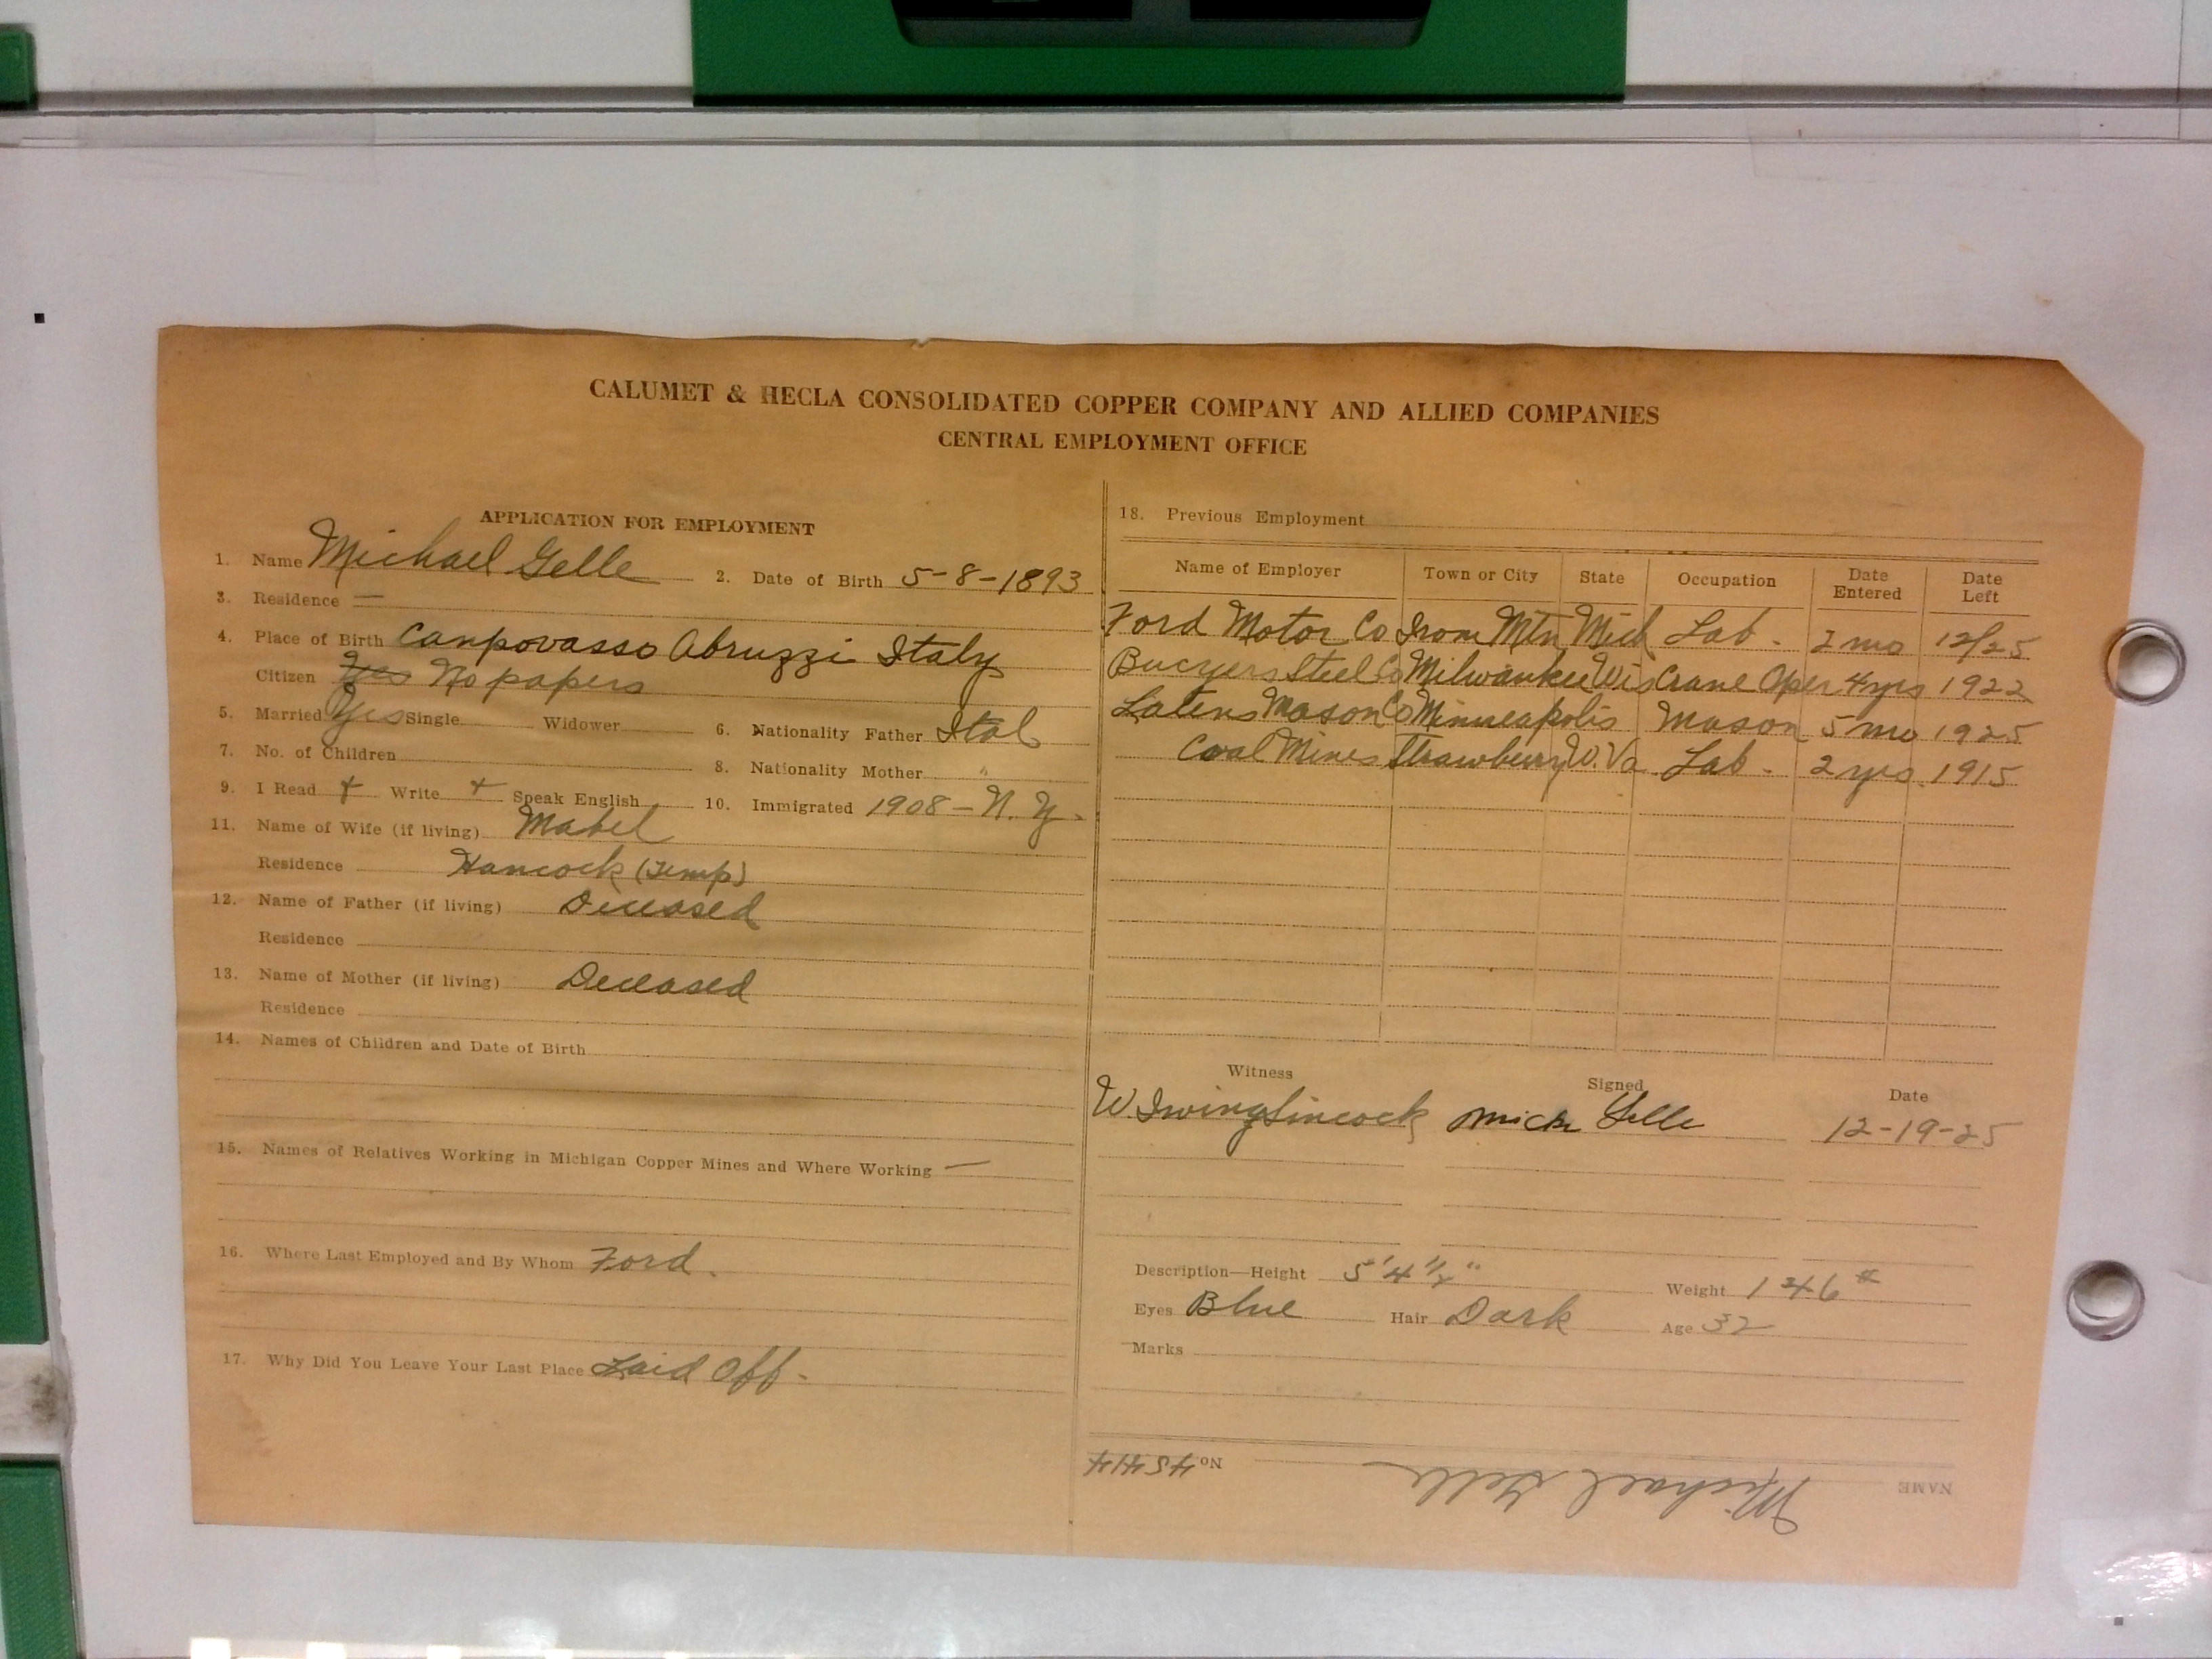 CALUMET & HECLA CONSOLIDATED COPPER COMPANY AND ALLIED COMPANIES
CENTRAL EMPLOYMENT OFFICE
APPLICATION FOR EMPLOYMENT
1. Name Michael Gelle 2. Date of Birth 5-8-1893
3. Residence —
4. Place of Birth Canpovasso Abruzzi Italy
Citizen Yes No papers
5. Married Yes Single Widower 6. Nationality Father Ital
7. No. of Children 8. Nationality Mother "
9. I Read + Write + Speak English 10. Immigrated 1908 - N.Y.
11. Name of Wife (if living) Mabel
Residence Hancock (Temp)
12. Name of Father (if living) Deceased
Residence
13. Name of Mother (if living) Deceased
Residence
14. Names of Children and Date of Birth
15. Names of Relatives Working in Michigan Copper Mines and Where Working —
16. Where Last Employed and By Whom Ford.
17. Why Did You Leave Your Last Place Laid Off -
18. Previous Employment
Name of Employer Town or City State Occupation Date Entered Date Left
Ford Motor Co Iron Mtn Mich Lab. 2 mo 12/25
Bucyers Steel Co Milwaukee Wis Crane Oper 4 yrs 1922
Latens Mason Co Minneapolis Mason 5 mo 1925
Coal Mines Strawberry W. Va Lab. 2 yrs. 1915
Witness Signed Date
W. Irwing Sincock Mick Gelle 12-19-25
Description—Height 5'4½" Weight 146#
Eyes Blue Hair Dark Age 32
Marks
NAME Michael Gelle No 45414